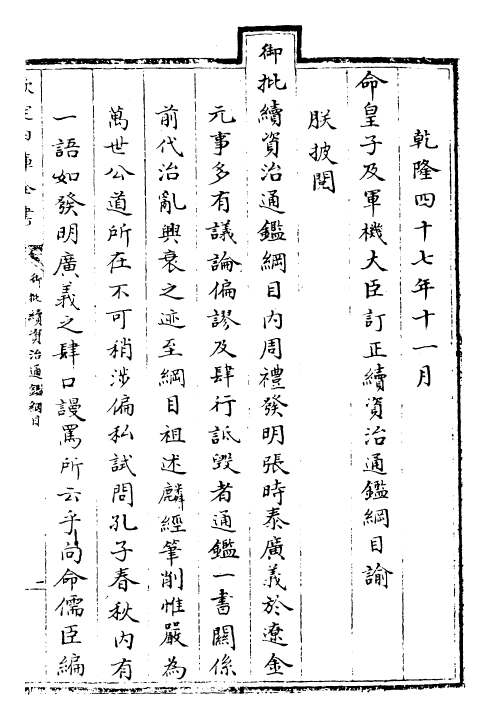 乾隆四十七年十一月
命皇子及軍機大臣訂正續資治通鑑綱目諭
朕披閱
御批續資治通鑑綱目內周禮發明張時泰廣義於遼金
元事多有議論偏謬及肆行詆毀者通鑑一書關係
前代治亂興衰之迹至綱目祖述麟經筆削惟嚴為
萬世公道所在不可稍涉偏私試問孔子春秋內有
一語如發明廣義之肆口謾罵所云乎向命儒臣編
欽定四庫全書
御批續資治通鑑綱目
一